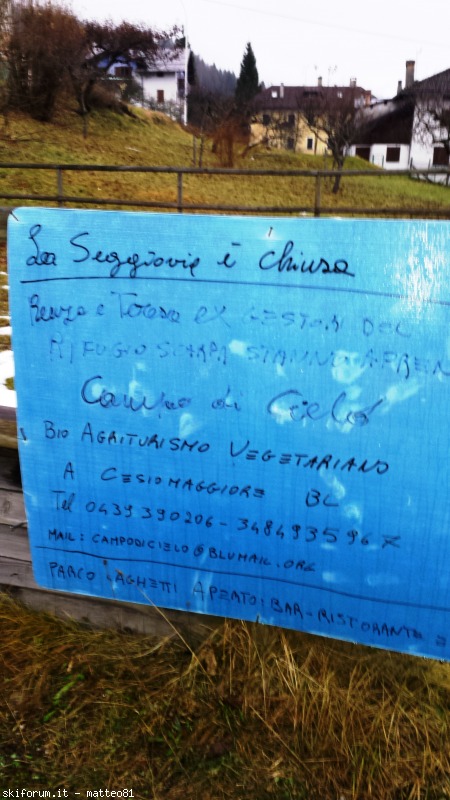 La Seggiovia è chiusa
Renzo e Teresa ex GESTORI DEL
RIFUGIO SCARPA STANNO APREN
Campo di Cielo
BIO AGRITURISMO VEGETARIANO
A CESIOMAGGIORE BL
Tel 0439 390206 - 3484935967
MAIL: CAMPODICIELO@BLUMAIL.ORG
PARCO LAGHETTI APERTO! BAR-RISTORANTE E
skiforum.it - matteo81